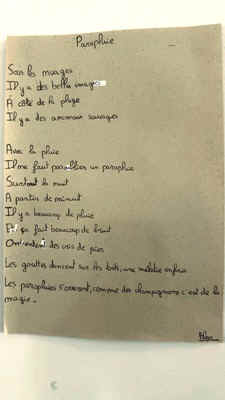 Parapluie
Sous les nuages
Il y a des belles images
À côté de la plage
Il y a des animaux sauvages
Avec la pluie
Il me faut pas oublier un parapluie
Surtout la nuit
A partir de minuit
Il y a beaucoup de pluie
Et ça fait beaucoup de bruit
On entend des voix de pies
Les gouttes dansent sur les toits, une mélodie enfouie
Les parapluies s'ouvrent, comme des champignons c'est de la
magie.